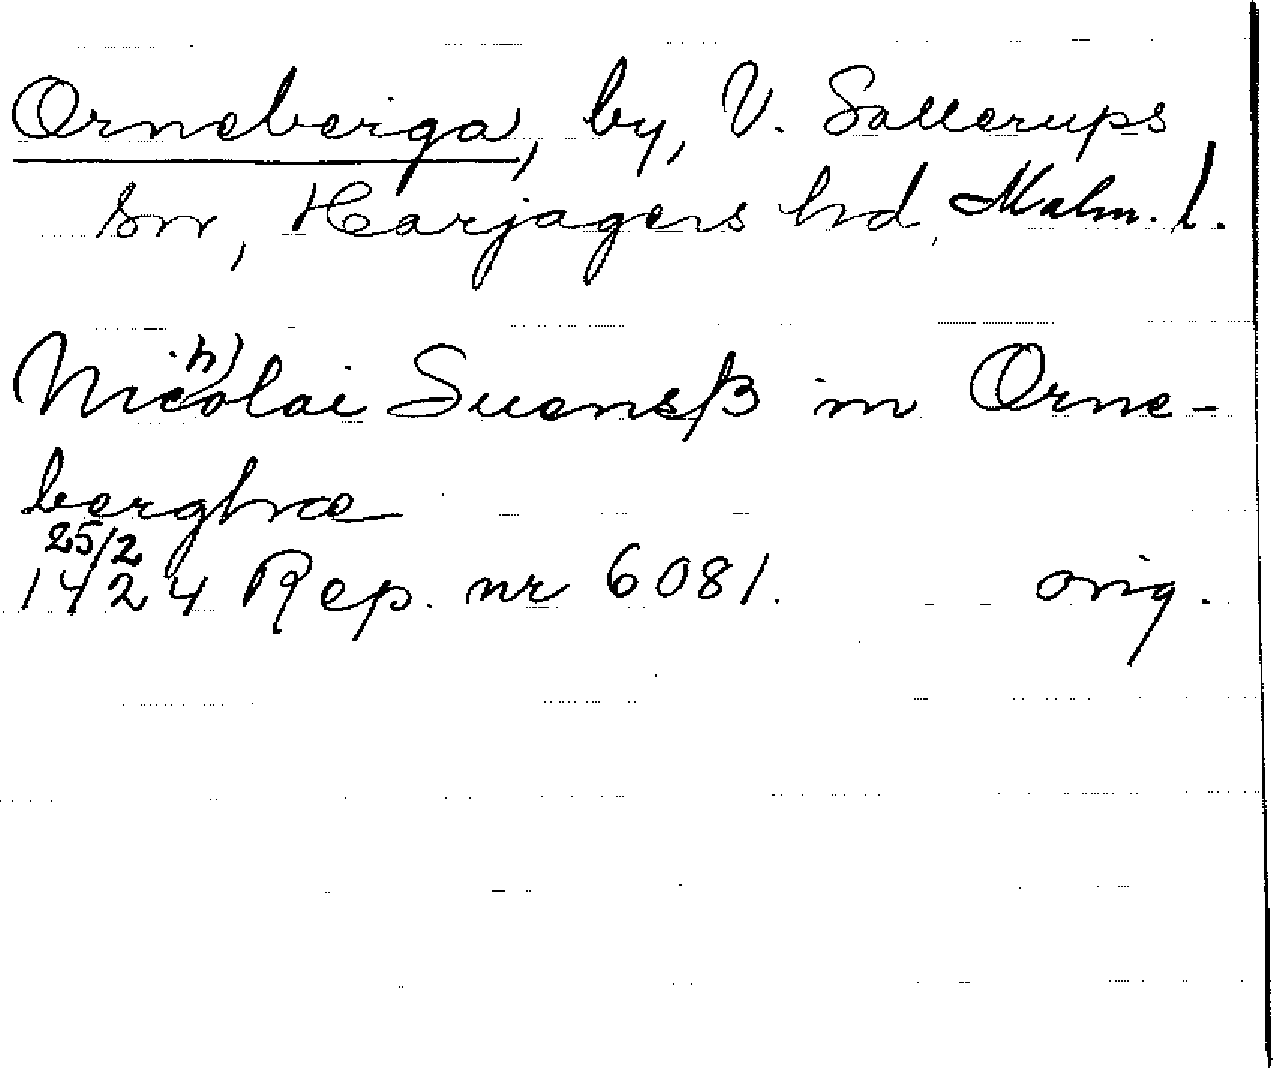 Orneberga, by, V. Sallerups
sn, Harjagers hd, Malm. l.
Nic(h)olai Suensß in Orne-
berghæ
25/2
1424 Rep. nr 6081. orig.